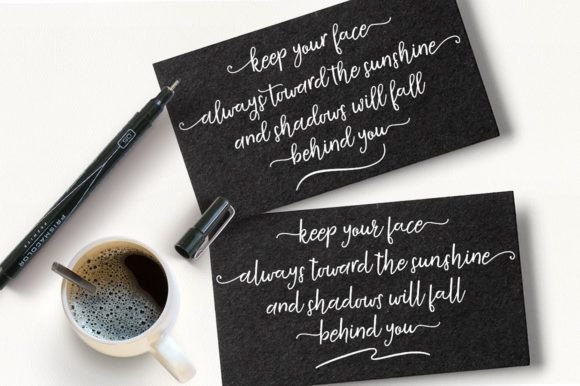 keep your face
always toward the sunshine
and shadows will fall
behind you
keep your face
always toward the sunshine
and shadows will fall
behind you
PRISMACOLOR
PREMIER